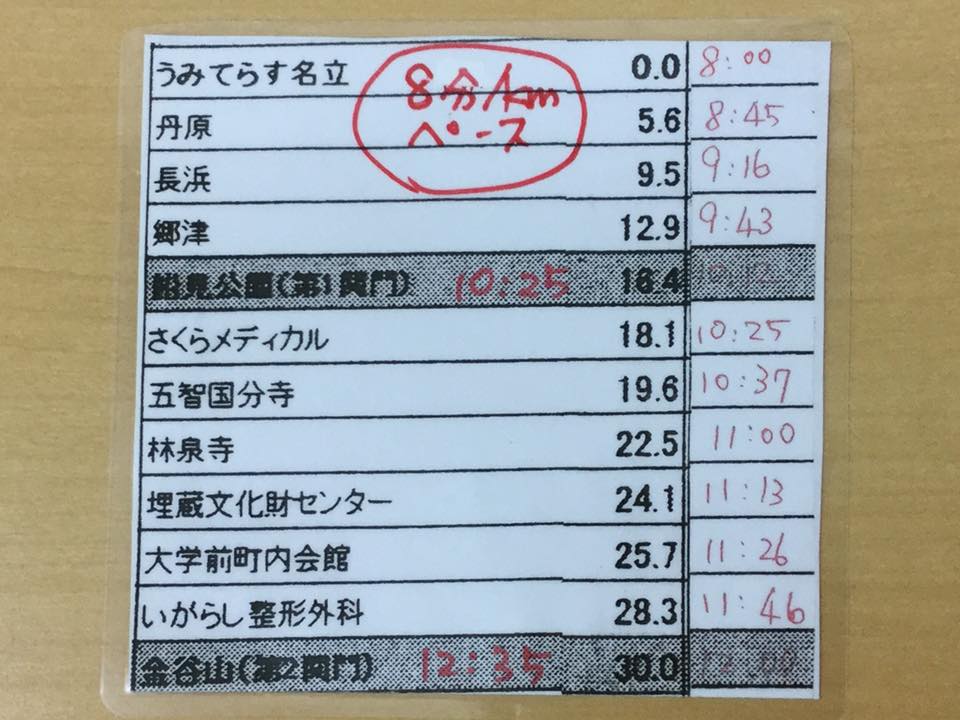 うみてらす名立 0.0 8:00
8分/km
ペース
丹原 5.6 8:45
長浜 9.5 9:16
郷津 12.9 9:43
船見公園(第1関門) 10:25 16.4 10:12
さくらメディカル 18.1 10:25
五智国分寺 19.6 10:37
林泉寺 22.5 11:00
埋蔵文化財センター 24.1 11:13
大学前町内会館 25.7 11:26
いがらし整形外科 28.3 11:46
金谷山(第2関門) 12:35 30.0 12:00